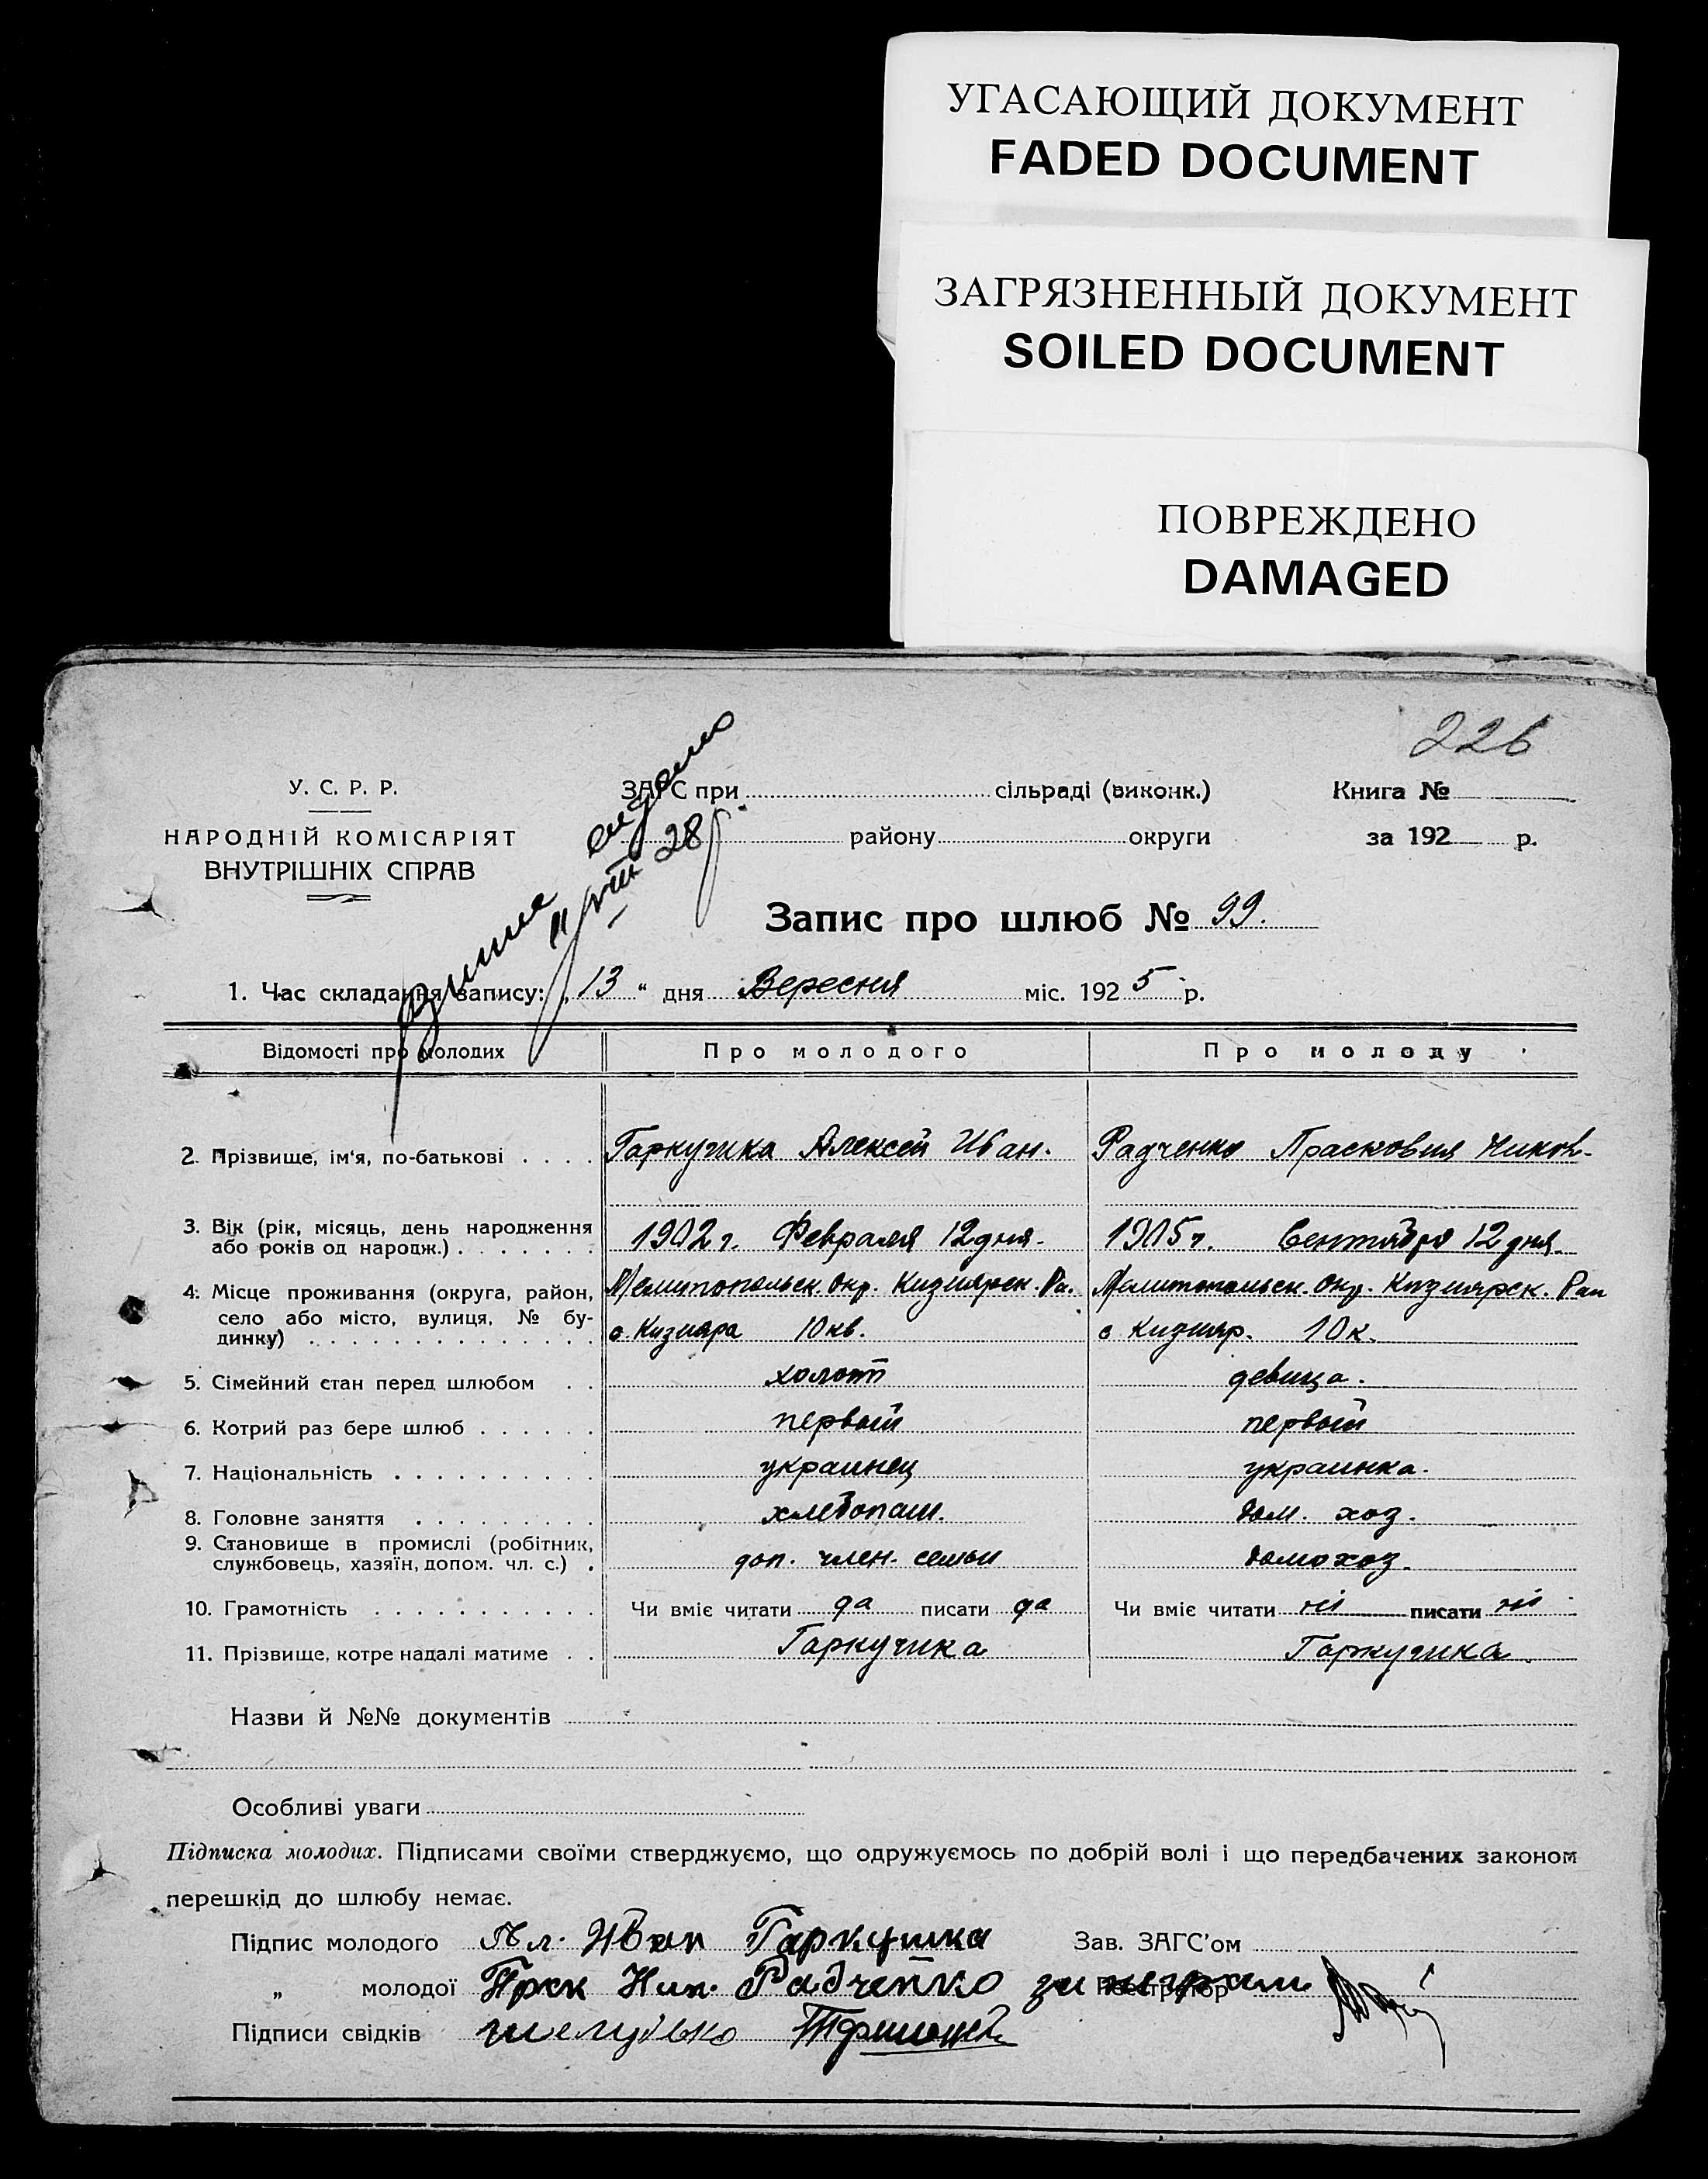 УГАСАЮЩИЙ ДОКУМЕНТ
FADED DOCUMENT
ЗАГРЯЗНЕННЫЙ ДОКУМЕНТ
SOILED DOCUMENT
ПОВРЕЖДЕНО
DAMAGED
226
У. С. Р. Р.
НАРОДНІЙ КОМІСАРІЯТ
ВНУТРІШНІХ СПРАВ
ЗАГС при сільраді (виконк.)
району округи
Книга №
за 192 р.
28
Запис про шлюб № 99.
1. Час складання запису: „ 13 “ дня Вересня міс. 1925 р.
Відомості про молодих Про молодого Про молоду
2. Прізвище, ім'я, по-батькові . . . . Гаркушка Алексей Иван. Радченко Прасковия Никон-
3. Вік (рік, місяць, день народження
або років од народж.) . . . . . . . 1902 г. Февраля 12 дня. 1905 г. Сентября 12 дня.
4. Місце проживання (округа, район, Мелитопольск. Окр. Кизиярск. Ра. Мелитопольск. Окр. Кизиярск. Рай
село або місто, вулиця, № бу-
динку) . . . . . . . . . . . . . с. Кизияра 10 кв. с Кизияр. 10 к.
5. Сімейний стан перед шлюбом . . холост девица.
6. Котрий раз бере шлюб . . . . . . первый первый
7. Національність . . . . . . . . . . украинец украинка.
8. Головне заняття . . . . . . . . . хлебопаш. дом. хоз.
9. Становище в промислі (робітник,
службовець, хазяїн, допом. чл. с.) . доп. член. семьи домохоз.
10. Грамотність . . . . . . . . . . . Чи вміє читати да писати да Чи вміє читати ні писати ні
11. Прізвище, котре надалі матиме . . Гаркушка Гаркушка.
Назви й №№ документів
Особливі уваги
Підписка молодих. Підписами своїми стверджуємо, що одружуємось по добрій волі і що передбачених законом
перешкід до шлюбу немає.
Підпис молодого Ал. Иван Гаркушка Зав. ЗАГС'ом
„ молодої Прск Ник. Радченко за неграм Реєстратор
Підписи свідків